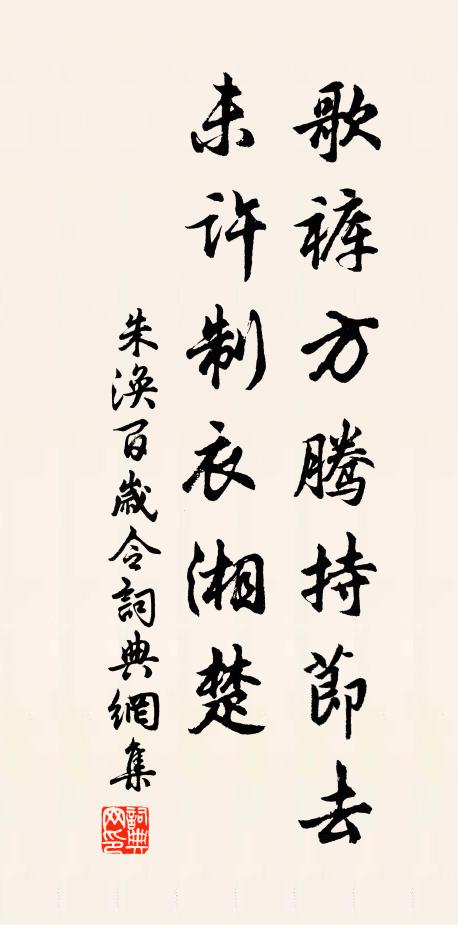 歌裤方腾持節去
未許制衣湘楚
朱涣百歲令詞典網集
詞典網印